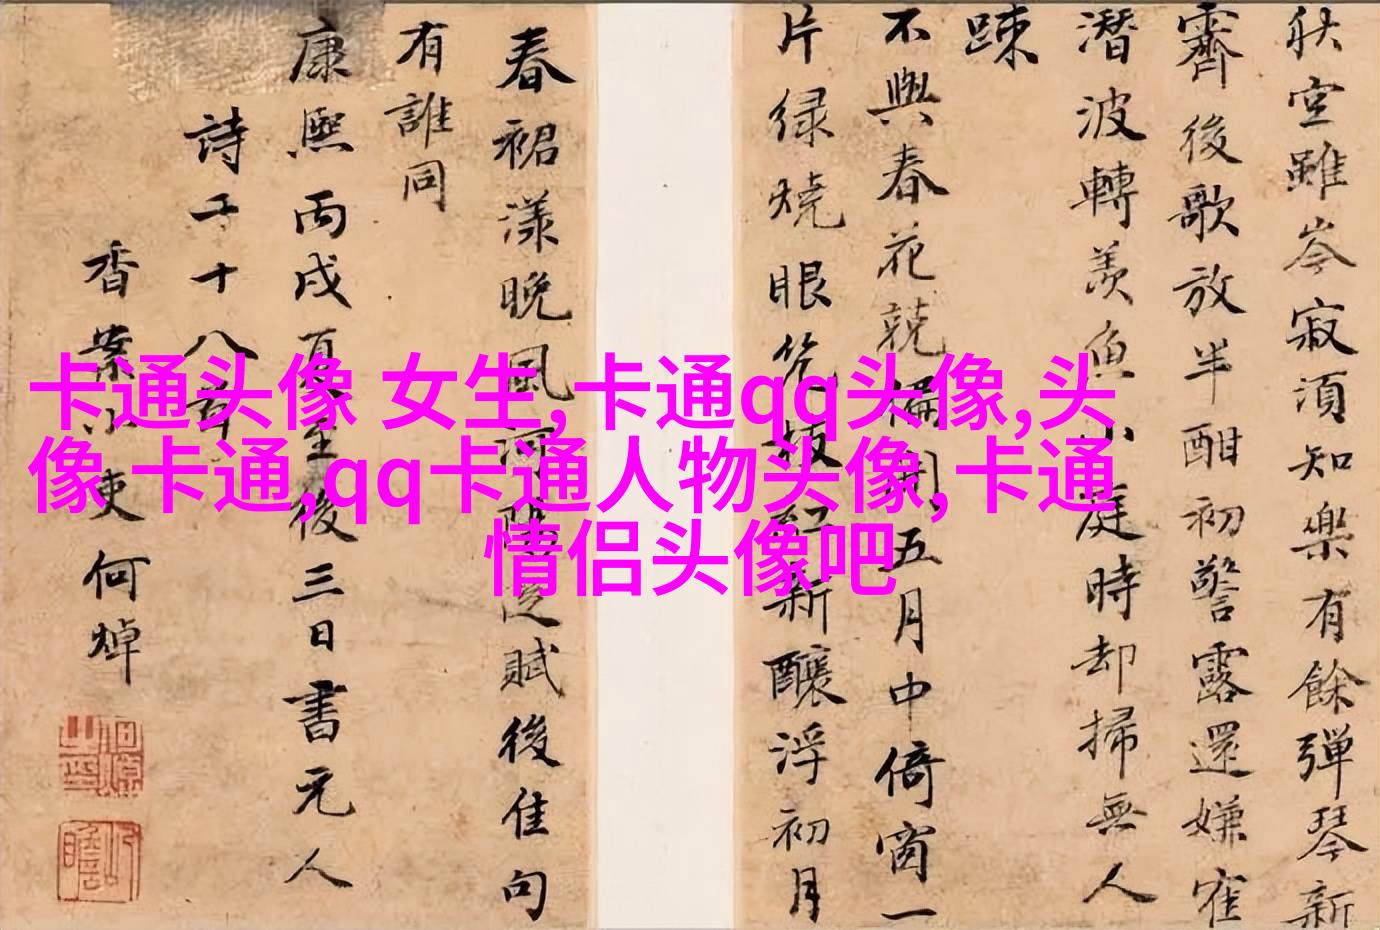 秋空雖岑寂須知樂有餘彈琴新
霽後歌放半酣初警露還嫌窄
潛波轉羨魚小庭時却掃無人
踈
不與春花競偏開五月中倚窗一
片緑燒眼 紅新釀浮初月
春裙漾晚風河陽 賦後佳句
有誰同
康熙丙戌夏至後三日書元人
詩二十八首
香案小吏何焯
卡通头像 女生,卡通qq头像,头
像 卡通,qq卡通人物头像,卡通
情侣头像吧